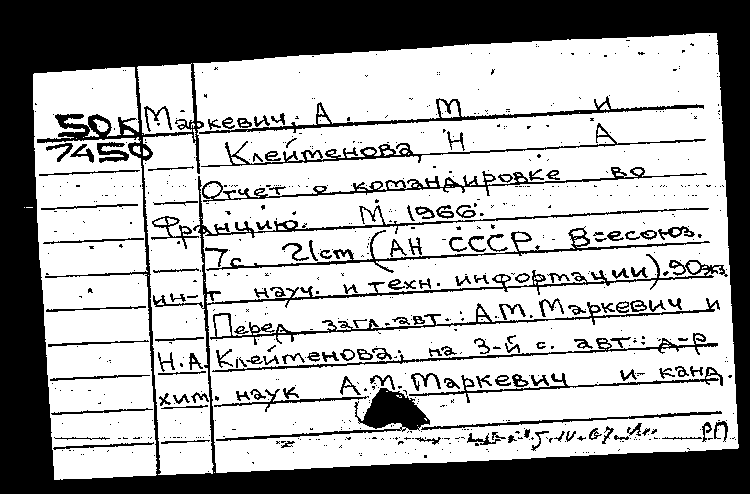 50К Маркевич, А. М и
7450 Клейменова, Н А
Отчет о командировке во
Францию. М, 1966.
7с. 21cm (АН СССР. Всесоюз.
ин-т науч. и техн. информации). 90 экз.
Перед загл. авт.: А.М. Маркевич и
Н.А. Клейменова; на 3-й с. авт.: д-р
хим. наук А.М. Маркевич и канд.
РП